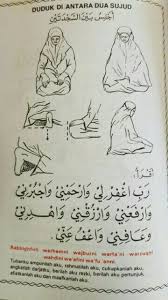 DUDUK DI ANTARA DUA SUJUD
اَجْلِسُ بَيْنَ السَّجْدَتَيْنِ
رَبِّ اغْفِرْلِيْ وَارْحَمْنِيْ وَاجْبُرْنِيْ
وَارْفَعْنِيْ وَارْزُقْنِيْ وَاهْدِنِيْ
وَعَافِنِيْ وَاعْفُ عَنِّيْ
Rabbighfirli warhamni wajburni warfa'ni warzuqni
wahdini wa'afini wa'fu 'anni.
Tuhanku ampunilah aku, rahmatilah aku, cukupkanlah aku,
angkatlah darjatku, berilah aku rezki, berilah aku petunjuk,
afiatkanlah aku dan maafkanlah aku.